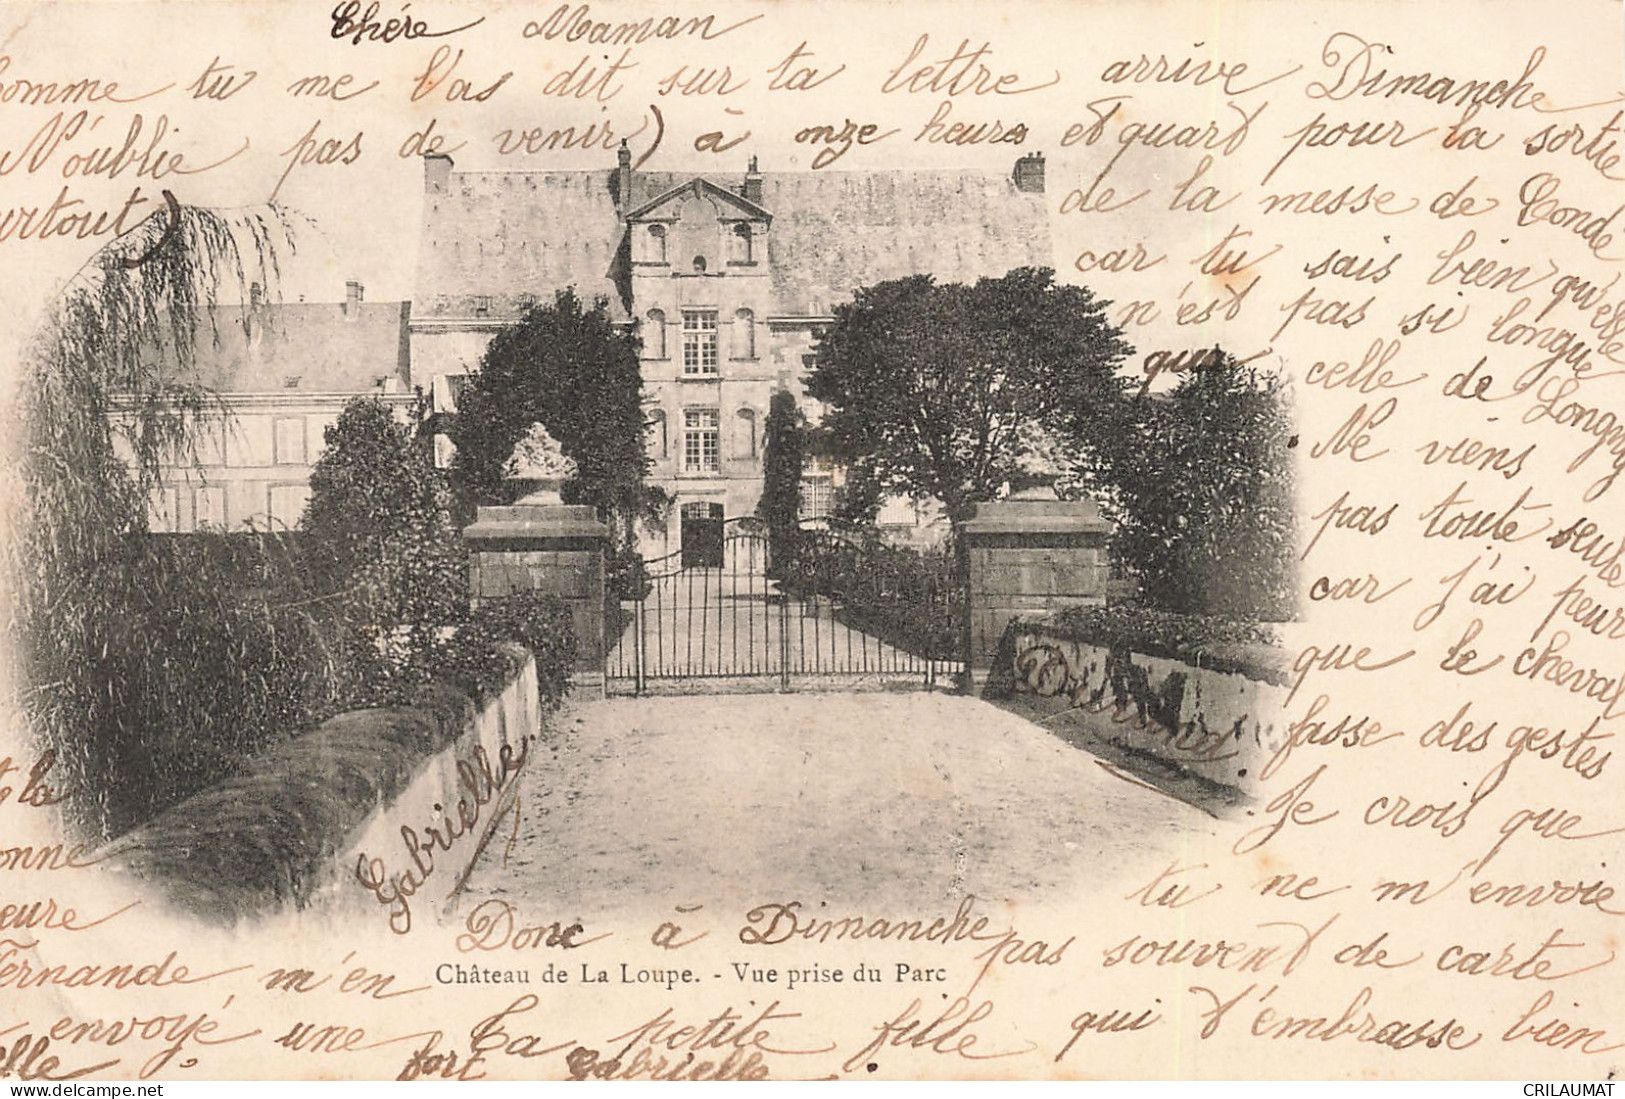 Chére Maman
comme tu me l'as dit sur ta lettre arrive Dimanche
N'oublie pas de venir) à onze heures et quart pour la sortie
surtout)
de la messe de Condé
car tu sais bien qu'elle
n'est pas si longue
que celle de Longny
Ne viens
pas toute seule
car j'ai peur
que le cheval
fasse des gestes
Je crois que
tu ne m'envoie
pas souvent de carte
la
bonne
Fernande m'en
envoyé une
elle
Gabrielle
Donc à Dimanche
Château de La Loupe. - Vue prise du Parc
Ta petite fille qui t'embrasse bien
fort Gabrielle.
CRILAUMAT